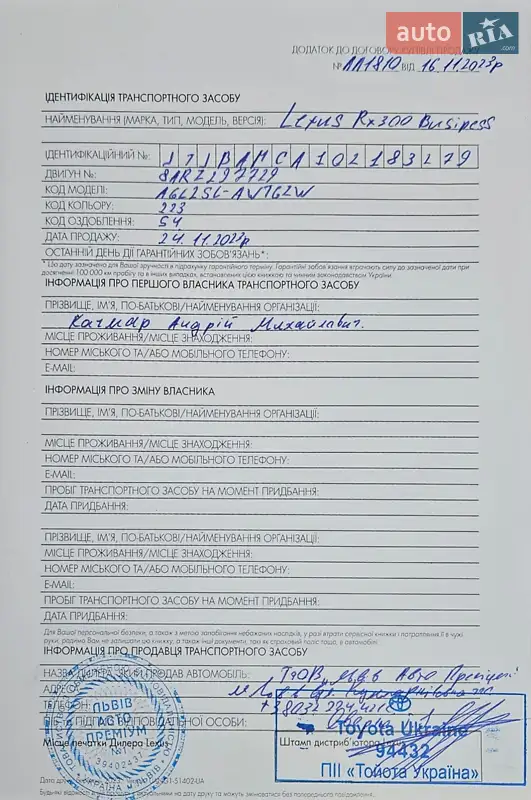 auto RIA .com
ДОДАТОК ДО ДОГОВОРУ КУПІВЛІ-ПРОДАЖУ
№ ЛЛ1810 ВІД 16.11.2023р
ІДЕНТИФІКАЦІЯ ТРАНСПОРТНОГО ЗАСОБУ
НАЙМЕНУВАННЯ (МАРКА, ТИП, МОДЕЛЬ, ВЕРСІЯ): Lexus Rx300 Business
ІДЕНТИФІКАЦІЙНИЙ №: JTJBAMCA102183279
ДВИГУН №: 8ARZ297729
КОД МОДЕЛІ: AGL25L-AWTGZW
КОД КОЛЬОРУ: 223
КОД ОЗДОБЛЕННЯ: 54
ДАТА ПРОДАЖУ: 24.11.2023р
ОСТАННІЙ ДЕНЬ ДІЇ ГАРАНТІЙНИХ ЗОБОВ'ЯЗАНЬ*:
* Цю дату зазначено для Вашої зручності в підрахунку гарантійного терміну. Гарантійні зобов'язання втрачають силу до зазначеної дати при
досягненні 100 000 км пробігу та в інших випадках, встановлених цією книжкою та чинним законодавством України
ІНФОРМАЦІЯ ПРО ПЕРШОГО ВЛАСНИКА ТРАНСПОРТНОГО ЗАСОБУ
ПРІЗВИЩЕ, ІМ'Я, ПО-БАТЬКОВІ/НАЙМЕНУВАННЯ ОРГАНІЗАЦІЇ:
Качмар Андрій Михайлович.
МІСЦЕ ПРОЖИВАННЯ/МІСЦЕ ЗНАХОДЖЕННЯ:
НОМЕР МІСЬКОГО ТА/АБО МОБІЛЬНОГО ТЕЛЕФОНУ:
E-MAIL:
ІНФОРМАЦІЯ ПРО ЗМІНУ ВЛАСНИКА
ПРІЗВИЩЕ, ІМ'Я, ПО-БАТЬКОВІ/НАЙМЕНУВАННЯ ОРГАНІЗАЦІЇ:
МІСЦЕ ПРОЖИВАННЯ/МІСЦЕ ЗНАХОДЖЕННЯ:
НОМЕР МІСЬКОГО ТА/АБО МОБІЛЬНОГО ТЕЛЕФОНУ:
E-MAIL:
ПРОБІГ ТРАНСПОРТНОГО ЗАСОБУ НА МОМЕНТ ПРИДБАННЯ:
ДАТА ПРИДБАННЯ:
ПРІЗВИЩЕ, ІМ'Я, ПО-БАТЬКОВІ/НАЙМЕНУВАННЯ ОРГАНІЗАЦІЇ:
МІСЦЕ ПРОЖИВАННЯ/МІСЦЕ ЗНАХОДЖЕННЯ:
НОМЕР МІСЬКОГО ТА/АБО МОБІЛЬНОГО ТЕЛЕФОНУ:
E-MAIL:
ПРОБІГ ТРАНСПОРТНОГО ЗАСОБУ НА МОМЕНТ ПРИДБАННЯ:
ДАТА ПРИДБАННЯ:
Для Вашої персональної безпеки, а також з метою запобігання небажаних наслідків, у разі втрати сервісної книжки і потрапляння її в чужі
руки, радимо Вам не залишати цю книжку, а також інші документи, такі як страховий поліс тощо, в автомобілі
ІНФОРМАЦІЯ ПРО ПРОДАВЦЯ ТРАНСПОРТНОГО ЗАСОБУ
НАЗВА ДИЛЕРА, ЯКИЙ ПРОДАВ АВТОМОБІЛЬ: ТзОВ Львів Авто Преміум
АДРЕСА:
ТЕЛЕФОН: +38032
ПІБ, ПІДПИС ВІДПОВІДАЛЬНОЇ ОСОБИ:
Місце печатки Дилера Lexus
Штамп дистриб'ютора
ЛЬВІВ
АВТО
ПРЕМІУМ
№1
39402431
Toyota Ukraine
94432
ПІІ «Тойота Україна»